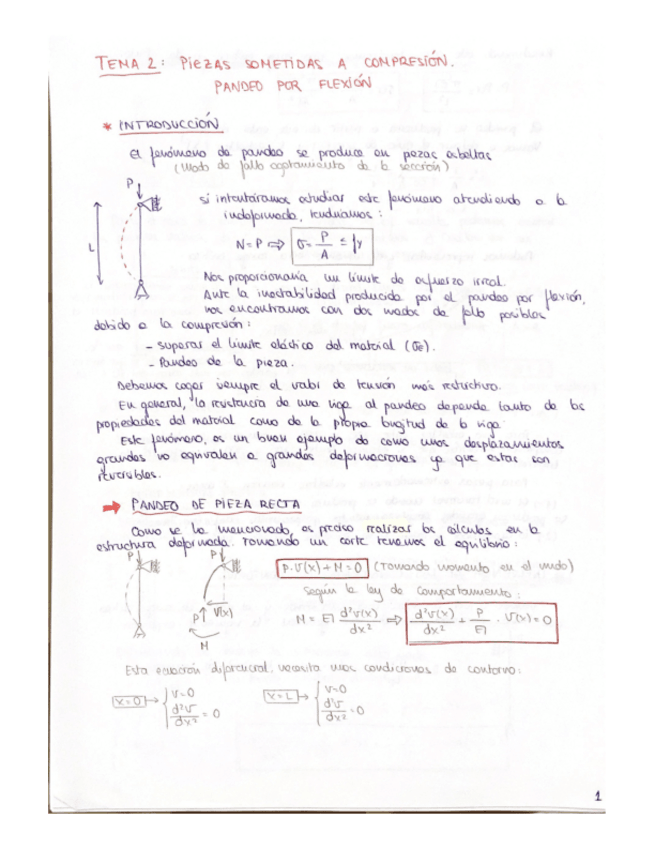 TEMA 2: PIEZAS SOMETIDAS A COMPRESIÓN.
PANDEO POR FLEXIÓN
* INTRODUCCIÓN
El fenómeno de pandeo se produce en piezas esbeltas
(Modo de fallo agotamiento de la sección)
P
L
si intentáramos estudiar este fenómeno atendiendo a la
indeformada, tendríamos:
N = P ⇒ σ = P/A ≤ fy
Nos proporcionaría un límite de esfuerzo irreal.
Ante la inestabilidad producida por el pandeo por flexión,
nos encontramos con dos modos de fallo posibles
debido a la compresión:
- Superar el límite elástico del material (σe).
- Pandeo de la pieza.
Debemos coger siempre el valor de tensión más restrictivo.
En general, la resistencia de una viga al pandeo depende tanto de las
propiedades del material como de la propia longitud de la viga.
Este fenómeno, es un buen ejemplo de como unos desplazamientos
grandes no equivalen a grandes deformaciones ya que estas son
reversibles.
→ PANDEO DE PIEZA RECTA
Como se ha mencionado, es preciso realizar los cálculos en la
estructura deformada. Tomando un corte tenemos el equilibrio:
P
P
P
V(x)
M
P·V(x) + M = 0 (Tomando momento en el nudo)
Según la ley de comportamiento:
M = EI d²V(x)/dx² ⇒ d²V(x)/dx² + P/EI · V(x) = 0
Esta ecuación diferencial, necesita unas condiciones de contorno:
x=0 → { V=0
d²V/dx² = 0
x=L → { V=0
d²V/dx² = 0
1